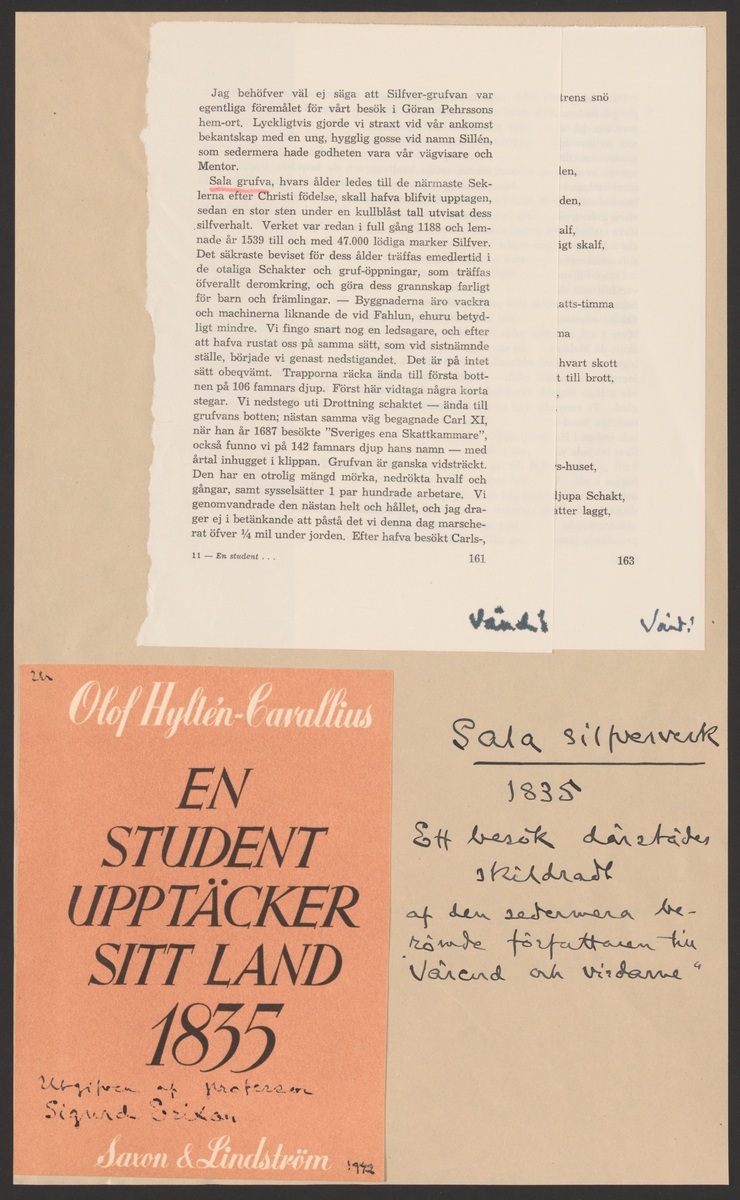 Jag behöfver väl ej säga att Silfver-grufvan var
egentliga föremålet för vårt besök i Göran Pehrssons
hem-ort. Lyckligtvis gjorde vi straxt vid vår ankomst
bekantskap med en ung, hygglig gosse vid namn Sillén,
som sedermera hade godheten vara vår vägvisare och
Mentor.
Sala grufva, hvars ålder ledes till de närmaste Sek-
lerna efter Christi födelse, skall hafva blifvit upptagen,
sedan en stor sten under en kullblåst tall utvisat dess
silfverhalt. Verket var redan i full gång 1188 och lem-
nade år 1539 till och med 47.000 lödiga marker Silfver.
Det säkraste beviset för dess ålder träffas emedlertid i
de otaliga Schakter och gruf-öppningar, som träffas
öfverallt deromkring, och göra dess grannskap farligt
för barn och främlingar. — Byggnaderna äro vackra
och machinerna liknande de vid Fahlun, ehuru betyd-
ligt mindre. Vi fingo snart nog en ledsagare, och efter
att hafva rustat oss på samma sätt, som vid sistnämnde
ställe, började vi genast nedstigandet. Det är på intet
sätt obeqvämt. Trapporna räcka ända till första bott-
nen på 106 famnars djup. Först här vidtaga några korta
stegar. Vi nedstego uti Drottning schaktet — ända till
grufvans botten; nästan samma väg begagnade Carl XI,
när han år 1687 besökte ”Sveriges ena Skattkammare”,
också funno vi på 142 famnars djup hans namn — med
årtal inhugget i klippan. Grufvan är ganska vidsträckt.
Den har en otrolig mängd mörka, nedrökta hvalf och
gångar, samt sysselsätter 1 par hundrade arbetare. Vi
genomvandrade den nästan helt och hållet, och jag dra-
ger ej i betänkande att påstå det vi denna dag marsche-
rat öfver ¼ mil under jorden. Efter hafva besökt Carls-,
11 — En student . . .
161
Vänd!
trens snö
len,
den,
alf,
igt skalf,
atts-timma
ma
hvart skott
t till brott,
,
s-huset,
djupa Schakt,
atter laggt,
163
Vänd!
Olof Hyltén-Cavallius
EN
STUDENT
UPPTÄCKER
SITT LAND
1835
Utgifven af professor
Sigurd Erixon
Saxon & Lindström
1942
Sala silfververk
1835
Ett besök därstädes
skildradt
af den sedermera be-
römde författaren till
"Värend och virdarne"